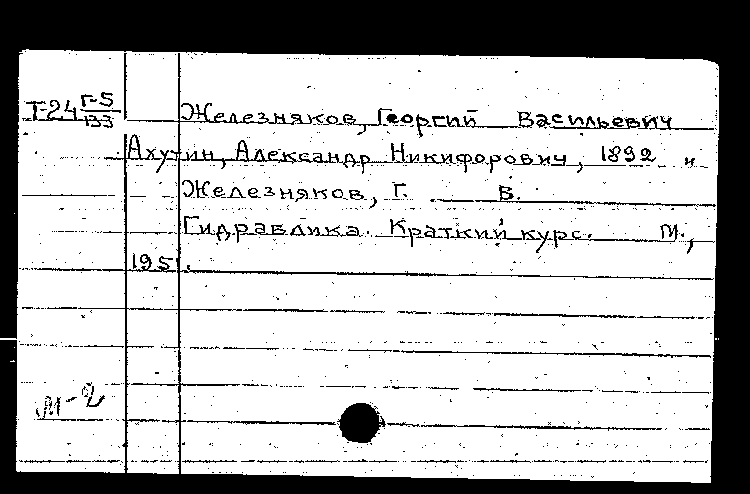 Т-24 Г-5/133
Железняков, Георгий Васильевич
Ахутин, Александр Никифорович, 1892 и
Железняков, Г. В.
Гидравлика. Краткий курс. М.,
1951.
М-2